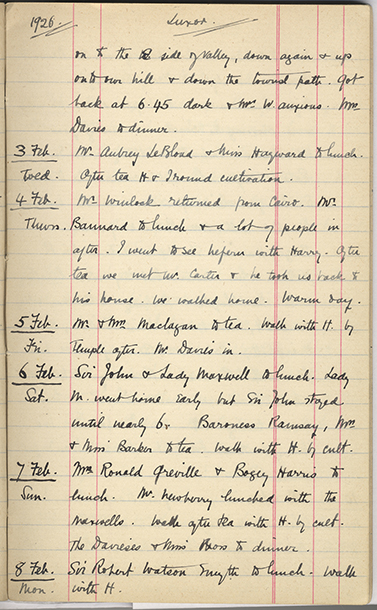 1926. Luxor.
on to the side of Valley, down again & up
onto our hill & down the tourist path. Got
back at 6.45 dark & Mrs W. anxious. Mrs
Davies to dinner.
3 Feb. Mr. Aubrey Le Blond & Miss Hayward to lunch.
Wed. After tea H & I round cultivation.
4 Feb. Mr. Winlock returned from Cairo. Mr.
Thurs. Barnard to lunch & a lot of people in
after. I went to see with Harry. After
tea we met Mr. Carter & he took us back to
his house. We walked home. Warm day.
5 Feb. Mr. & Mrs. Maclagan to tea. Walk with H. by
Fri. Temple after. Mr. Davies in.
6 Feb. Sir John & Lady Maxwell to lunch. Lady
Sat. M. went home early but Sir John stayed
until nearly 6. Baroness Ramsay, Mrs
& Miss Barker to tea. Walk with H. by cult.
7 Feb. Mrs Ronald Greville & Bogey Harris to
Sun. lunch. Mr. Newberry lunched with the
Maxwells. Walk after tea with H. by cult.
The Davieses & Miss to dinner.
8 Feb. Sir Robert Watson Smyth to lunch. Walk
Mon. with H.